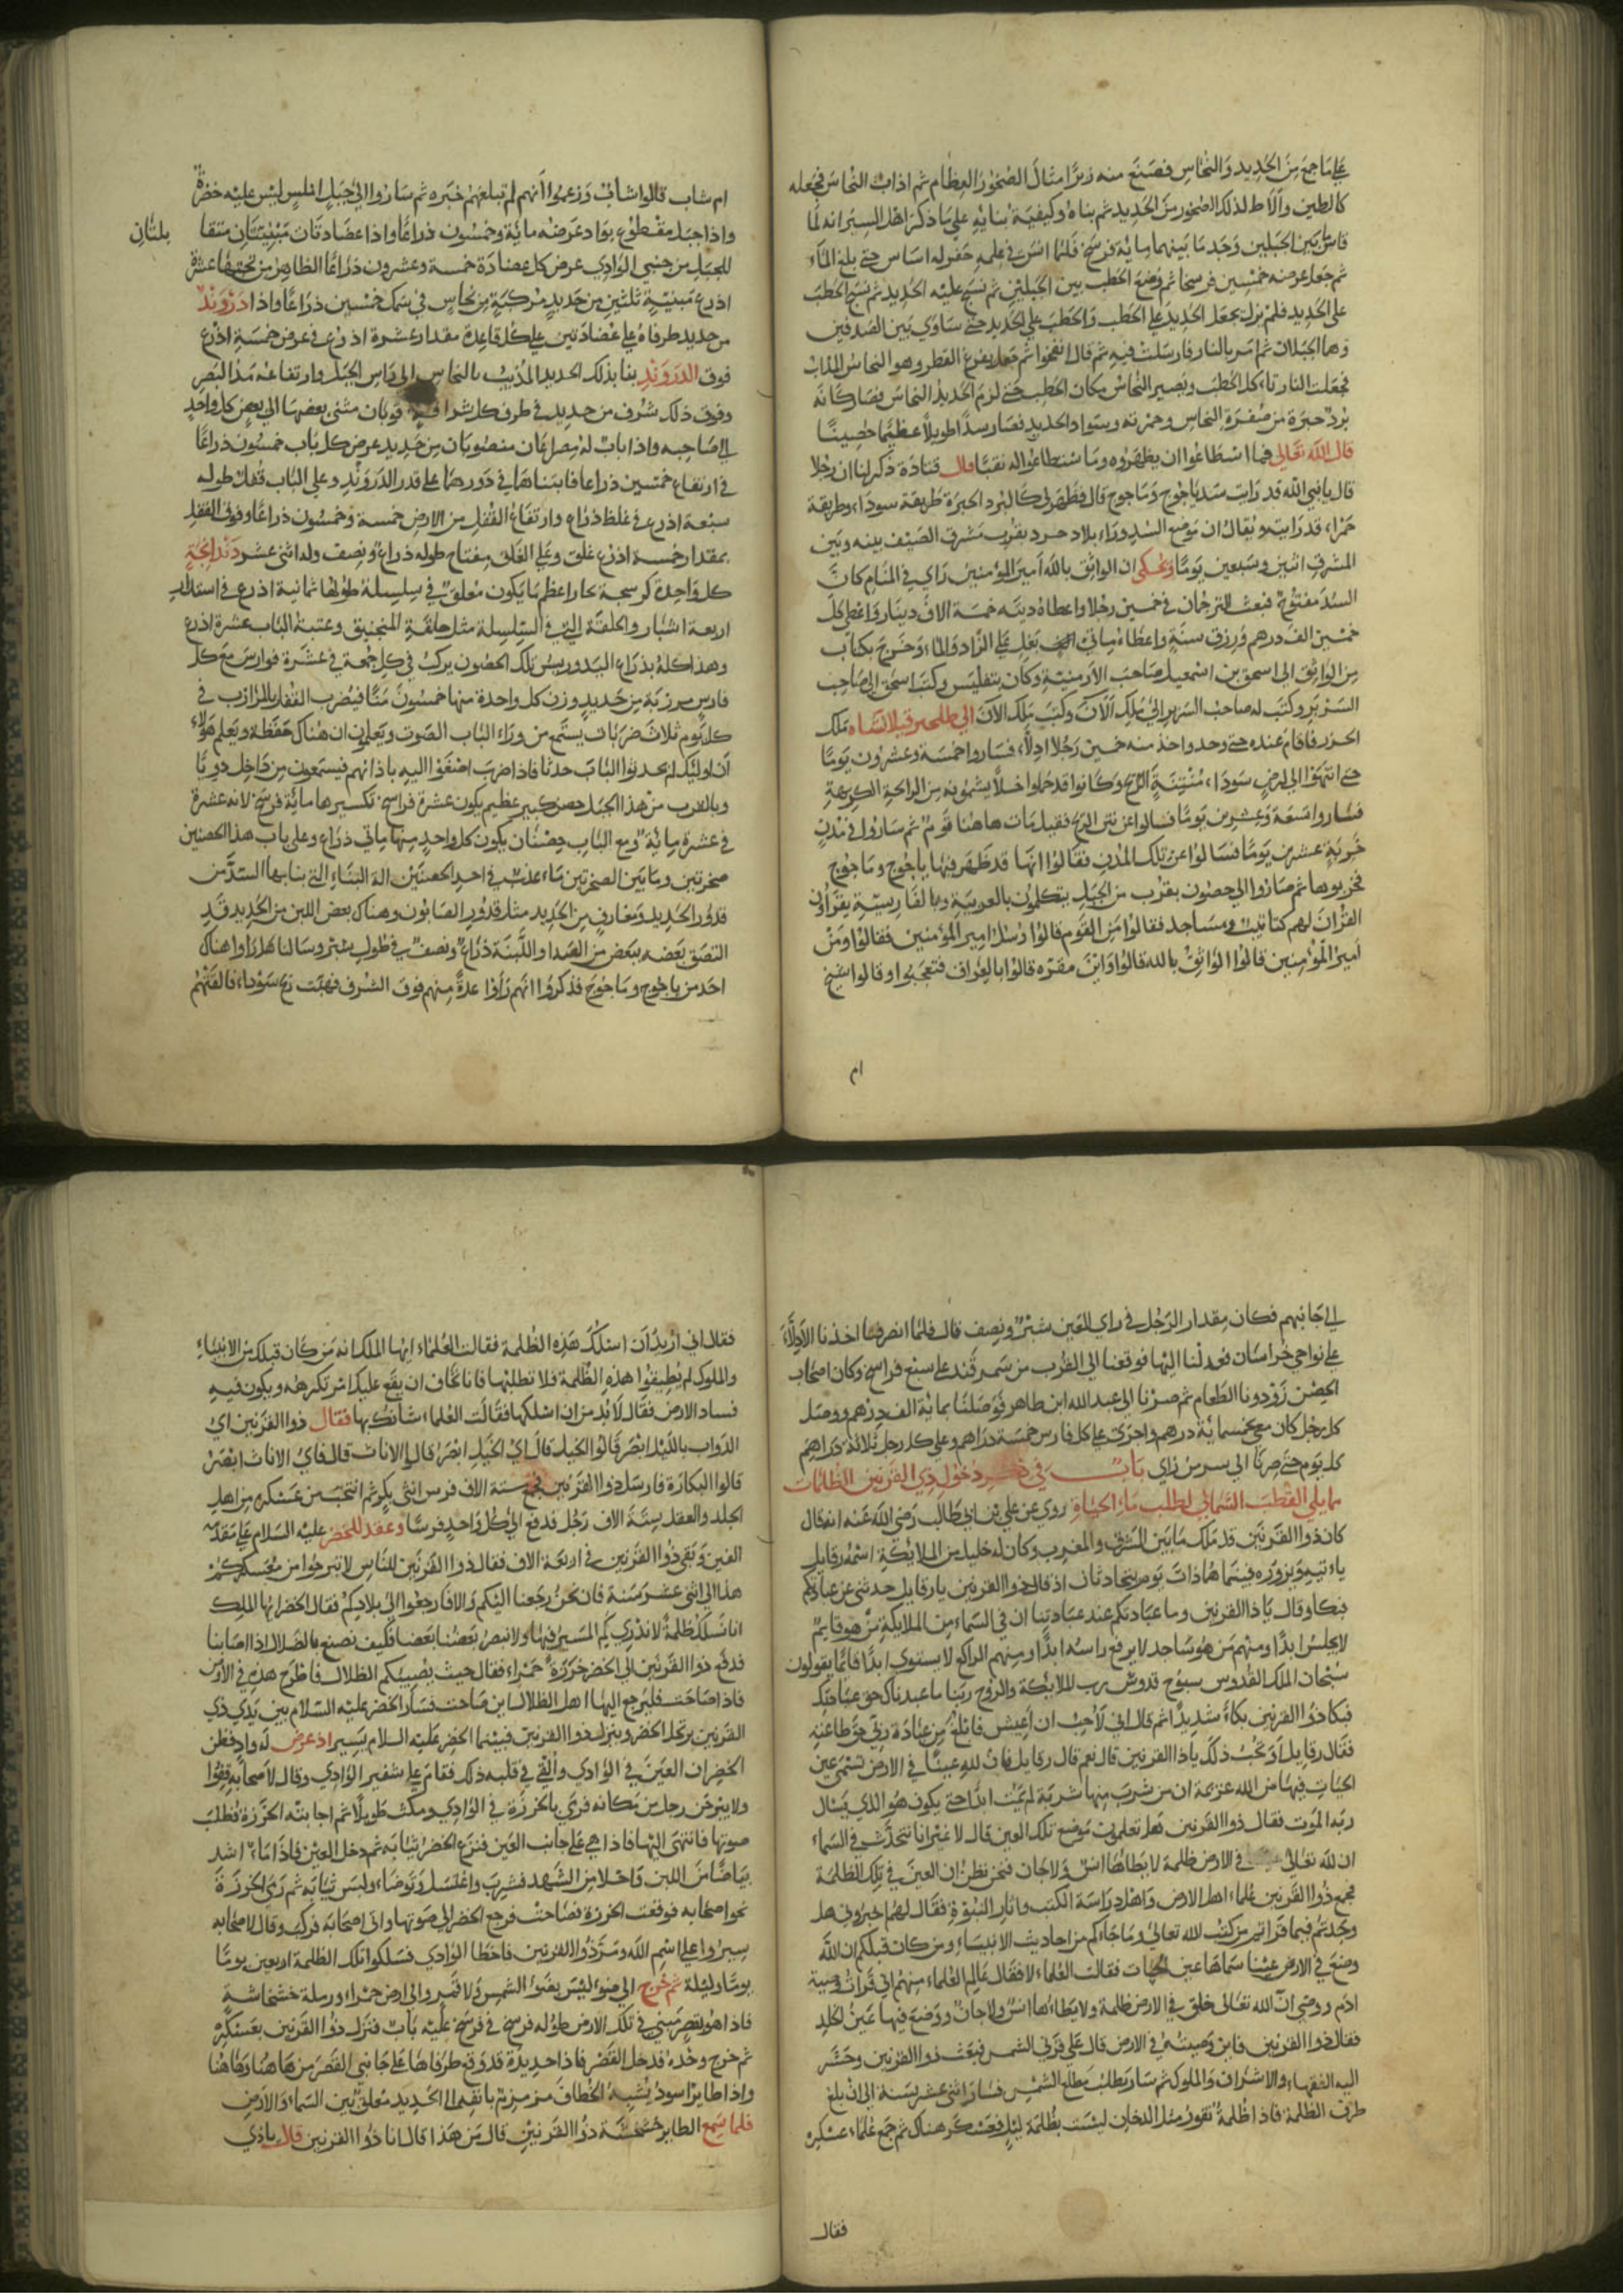 على ما جمع من الحديد والنحاس فصنع منه زبرا امثال الصخور العظام ثم اذاب النحاس فجعله
كالطين والملاط لذلك الصخور من الحديد ثم بناه وكيفية بنايه على ما ذكر اهل السير انه لما
قاس ما بين الجبلين وجد ما بينهما ماية فرسخ فلما اشرع في علمه حفر له اساس حتى بلغ الماء
ثم جعل عرضه خمسين فرسخا ثم وضع الحطب بين الجبلين ثم نسج عليه الحديد ثم نسج الحطب
على الحديد فلم يزل يجعل الحديد على الحطب والحطب على الحديد حتى ساوى بين الصدفين
وهما الجبلان ثم امر بالنار فارسلت فيه ثم قال انفخوا ثم جعل يفرغ القطر وهو النحاس المذاب
فجعلت النار تاكل الحطب ويصير النحاس مكان الحطب حتى لزم الحديد النحاس فصار كانه
برد حبرة من صفرة النحاس وحمرته وسواد الحديد فصار سدا طويلا عظيما حصينا
قال الله تعالى فما اسطاعوا ان يظهروه وما استطاعوا له نقبا قال قتادة ذكر لنا ان رجلا
قال يا نبي الله قد رايت سد ياجوج وماجوج قال فظهر لي كالبرد الحبرة طريقة سوداء وطريقة
حمراء قد رايته ويقال ان موضع السد وراء بلاد حرد بقرب مشرق الصيف بينه وبين
المشرق اثنين وسبعين يوما ويحكى ان الواثق بالله امير المومنين راى في المنام كان
السد مفتوح فبعث الترجمان في خمسين رجلا واعطاه ديته خمسة الاف دينار واعطى كل
خمسين الف درهم ورزق سنة واعطاه مايتي بغل على الزاد والماء وخرج بكتاب
من الواثق الى اسحق بن اسمعيل صاحب الارمنية وكان بتفليس وكتب اسحق الى صاحب
السرير وكتب له صاحب السرير الى ملك الان وكتب ملك الان الى طلحىر قيلانشاه ملك
الحرد فاقام عنده حتى وجد واخذ منه خمسين رجلا ادلاء فساروا خمسة وعشرون يوما
حتى انتهوا الى ارض سوداء منتنة الريح وكانوا قد حملوا خلا يشمونه من الرايحة الكريهة
فساروا تسعة وعشرين يوما فسالوا عن نتن الريح فقيل مات هاهنا قوم ثم ساروا في مدن
خربة عشرين يوما فسالوا عن تلك المدن فقالوا انها قد ظهر فيها ياجوج وماجوج
فخربوها ثم صاروا الى حصون بقرب من الجبل يتكلمون بالعربية وبالفارسية يقراون
القران لهم كتاتيب ومساجد فقالوا من القوم قالوا رسل امير المومنين فقالوا ومن
امير المومنين قالوا الواثق بالله قالوا واين مقره قالوا بالعراق فتعجبوا وقالوا شيخ
ام
ام شاب قالوا شاب وزعموا انهم لم تبلغهم خبره ثم ساروا الى جبل املس ليس عليه خضرة
واذا جبل مقطوع بواد عرضه ماية وخمسون ذراعا واذا عضادتان مبنيتان متقا
بلتان
للجبل من جنبي الوادي عرض كل عضادة خمسة وعشرون ذراعا الظاهر من تحتها عشرة
اذرع مبنية ثلثين من حديد مركبة من نحاس في سمك خمسين ذراعا واذا دروند
من حديد طرفاه على عضادتين على كل قاعدة مقدار عشرة اذرع في عرض خمسة اذرع
فوق الدروند بنا بذلك الحديد المذيب بالنحاس الى راس الجبل وارتفاعه مد البصر
وفوق ذلك شرف من حديد في طرف كل شرافة قوبان مثنى بعضها الى بعض كل واحد
الى صاحبه واذا باب له مصراعان منصوبان من حديد عرض كل باب خمسون ذراعا
في ارتفاع خمسين ذراعا قابمتاهما في دورهما على قدر الدروند وعلى الباب قفل طوله
سبعة اذرع في غلظ ذراع وارتفاع القفل من الارض خمسة وخمسون ذراعا وفوق القفل
بمقدار خمسة اذرع غلق وعلى الغلق مفتاح طوله ذراع ونصف وله اثنى عشر دندانجة
كل واحدة كدستجة اعظم ما يكون معلق في سلسلة طولها ثمانية اذرع في استدارة
اربعة اشبار والحلقة التي في السلسلة مثل حلقة المنجنيق وعتبة الباب عشرة اذرع
وهذا كله بذراع اليد وريس تلك الحصون يركب في كل جمعة في عشرة فوارس مع كل
فارس مرزبة من حديد وزن كل واحدة منها خمسون منا فيضرب القفل بالمرازب في
كل يوم ثلاث ضربات يستمع من وراء الباب الصوت ويعلمون ان هناك حفظة ويعلم هولاء
ان اوليك لم يحدثوا الباب حدثا فاذا ضرب اصغوا اليه باذانهم فيستمعون من داخل دويا
وبالقرب من هذا الجبل حصن كبير عظيم يكون عشرة فراسخ تكسيرها ماية فرسخ لانه عشرة
في عشرة ماية ومع الباب حصنان يكون كل واحد منها مايتي ذراع وعلى باب هذا الحصنين
صخرتين وما بين الصخرتين ماء عذب في احد الحصنين الة البناء التي بنا بها السد من
قدور الحديد ومغارف من الحديد مثل قدور الصابون وهناك بعض اللبن من الحديد قد
التصق بعضه ببعض من الصدا واللبنة ذراع ونصف في طول شبر وسالنا هل راوا هناك
احد من ياجوج وماجوج فذكروا انهم راوا عدة منهم فوق الشرف فهبت ريح سوداء فالقتهم
الى جانبهم فكان مقدار الرجل في راي العين شبر ونصف قال فلما انصرفنا اخذنا الادلاء
على نواحي خراسان فعدلنا اليها فوقعنا الى القرب من سمرقند على سبع فراسخ وكان اصحاب
الحصن زودونا الطعام ثم صرنا الى عبد الله ابن طاهر فوصلنا بماية الف درهم ووصل
كل رجل كان معي خمسماية درهم واجرى على كل فارس خمسة دراهم وعلى كل رجل ثلاثة دراهم
كل يوم حتى صرنا الى سر من راي باب في ذكر دخول ذي القرنين الظلمات
مما يلي القطب الشمالي لطلب ماء الحياة روي عن علي بن ابي طالب رضي الله عنه انه قال
كان ذوا القرنين قد ملك ما بين المشرق والمغرب وكان له خليل من الملايكة اسمه رفايل
ياتيه ويزوره فبينما هما ذات يوم يتحادثان اذ قال ذوا القرنين يا رفايل حدثني عن عبادتكم
فبكا وقال يا ذا القرنين وما عبادتكم عند عبادتنا ان في السماء من الملايكة من هو قايم
لا يجلس ابدا ومنهم من هو ساجد لا يرفع راسه ابدا ومنهم الراكع لا يستوي ابدا قايما يقولون
سبحان الملك القدوس سبوح قدوس رب الملايكة والروح ربنا ما عبدناك حق عبادتك
فبكا ذوا القرنين بكاء شديدا ثم قال اني لاحب ان اعيش فابلغ من عبادة ربي حق طاعته
فقال رفايل او تحب ذلك يا ذا القرنين قال نعم قال رفايل فان لله عينا في الارض تسمى عين
الحيات فيها من الله عزيمة ان من شرب منها شربة لم يمت ابدا حتى يكون هو الذي يسال
ربه الموت فقال ذوا القرنين هل تعلمون موضع تلك العين قال لا غير انا نتحدث في السماء
ان لله تعالى في الارض ظلمة لا يطاها انس ولا جان فنحن نظن ان العين في تلك الظلمة
فجمع ذوا القرنين علماء اهل الارض واهل دراسة الكتب واثار النبوة فقال لهم اخبروني هل
وجدتم فيما قراتم من كتب لله تعالى وما جاءكم من احاديث الانبياء ومن كان قبلكم ان الله
وضع في الارض عينا سماها عين الحيات فقالت العلماء لا فقال عالم العلماء منهم اني قرات وصية
ادم ووصى ان الله تعالى خلق في الارض ظلمة ولا يطاءها انس ولا جان ووضع فيها عين الخلد
فقال ذوا القرنين فاين وصيته في الارض قال على قرني الشمس فبعث ذوا القرنين وحشر
اليه الفقهاء والاشراف والملوك ثم سار يطلب مطلع الشمس فسار اثنى عشر سنة الى ان بلغ
طرف الظلمة فاذا ظلمة تفور مثل الدخان ليست بظلمة ليل فعسكر هناك ثم جمع علماء عسكره
فقال
فقال اني اريد ان اسلك هذه الظلمة فقالت العلماء ايها الملك انه من كان قبلك من الانبياء
والملوك لم يطيقوا هذه الظلمة فلا تطلبها فانا نخاف ان يقع عليك امر تكرهه ويكون فيه
فساد الارض فقال لا بد من ان اسلكها فقالت العلماء شانك بها فقال ذوا القرنين اي
الدواب بالليل ابصر قالوا الخيل قال اي الخيل ابصر قالوا الاناث قال فاي الاناث ابصر
قالوا البكارة فارسل ذوا القرنين فجمع ستة الاف فرس انثى بكر ثم انتخب من عسكره من اهل
الجلد والعقل ستة الاف رجل فدفع الى كل واحد فرسا وعقد للخضر عليه السلام على مقدمته
الفين وبقي ذوا القرنين في اربعة الاف فقال ذوا القرنين للناس لا تبرحوا من معسكركم
هذا الى اثني عشر سنة فان نحن رجعنا اليكم والا فارجعوا الى بلادكم فقال الخضر ايها الملك
انا نسلك ظلمة لا ندري كم المسير فيها ولا نبصر بعضنا بعضا فكيف نصنع بالضلال اذا اصابنا
فدفع ذوا القرنين الى الخضر خرزة حمراء فقال حيث يصيبكم الظلال فاطرح هذه في الارض
فاذا صاحت فليرجع اليها اهل الظلال اين صاحت فسار الخضر عليه السلام بين يدي ذي
القرنين يرتحل الخضر وينزل ذوا القرنين فبينما الخضر عليه السلام يسير اذ عرض له واد فظن
الخضر ان العين في الوادي والقي في قلبه ذلك فقام على شفير الوادي وقال لاصحابه قفوا
ولا يبرحن رجل من مكانه فرمى بالخرزة في الوادي ومكث طويلا ثم اجابته الخرزة فطلب
صوتها فانتهى اليها فاذا هي على جانب العين فنزع الخضر ثيابه ثم دخل العين فاذا ماء اشد
بياضا من اللبن واحلا من الشهد فشرب واغتسل وتوضاء ولبس ثيابه ثم رمى الخرزة
نحو اصحابه فوقعت الخرزة فصاحت فرجع الخضر الى صوتها والى اصحابه فركب وقال لاصحابه
سيروا على اسم الله ومر ذوا القرنين فاخطا الوادي فسلكوا تلك الظلمة اربعين يوما
يوما وليلة ثم خرج الى ضوء ليس بضوء الشمس ولا قمر والى ارض حمراء ورملة خشخاشة
فاذا هو بقصر مبني في تلك الارض طوله فرسخ في فرسخ عليه باب فنزل ذوا القرنين بعسكره
ثم خرج وحده فدخل القصر فاذا حديدة قد وضع طرفاها على جانبي القصر من هاهنا وهاهنا
واذا طاير اسود يشبه الخطاف مزموم بانفه الى الحديد معلق بين السماء والارض
فلما سمع الطاير خشخشة ذوا القرنين قال من هذا قال انا ذوا القرنين قال يا ذي